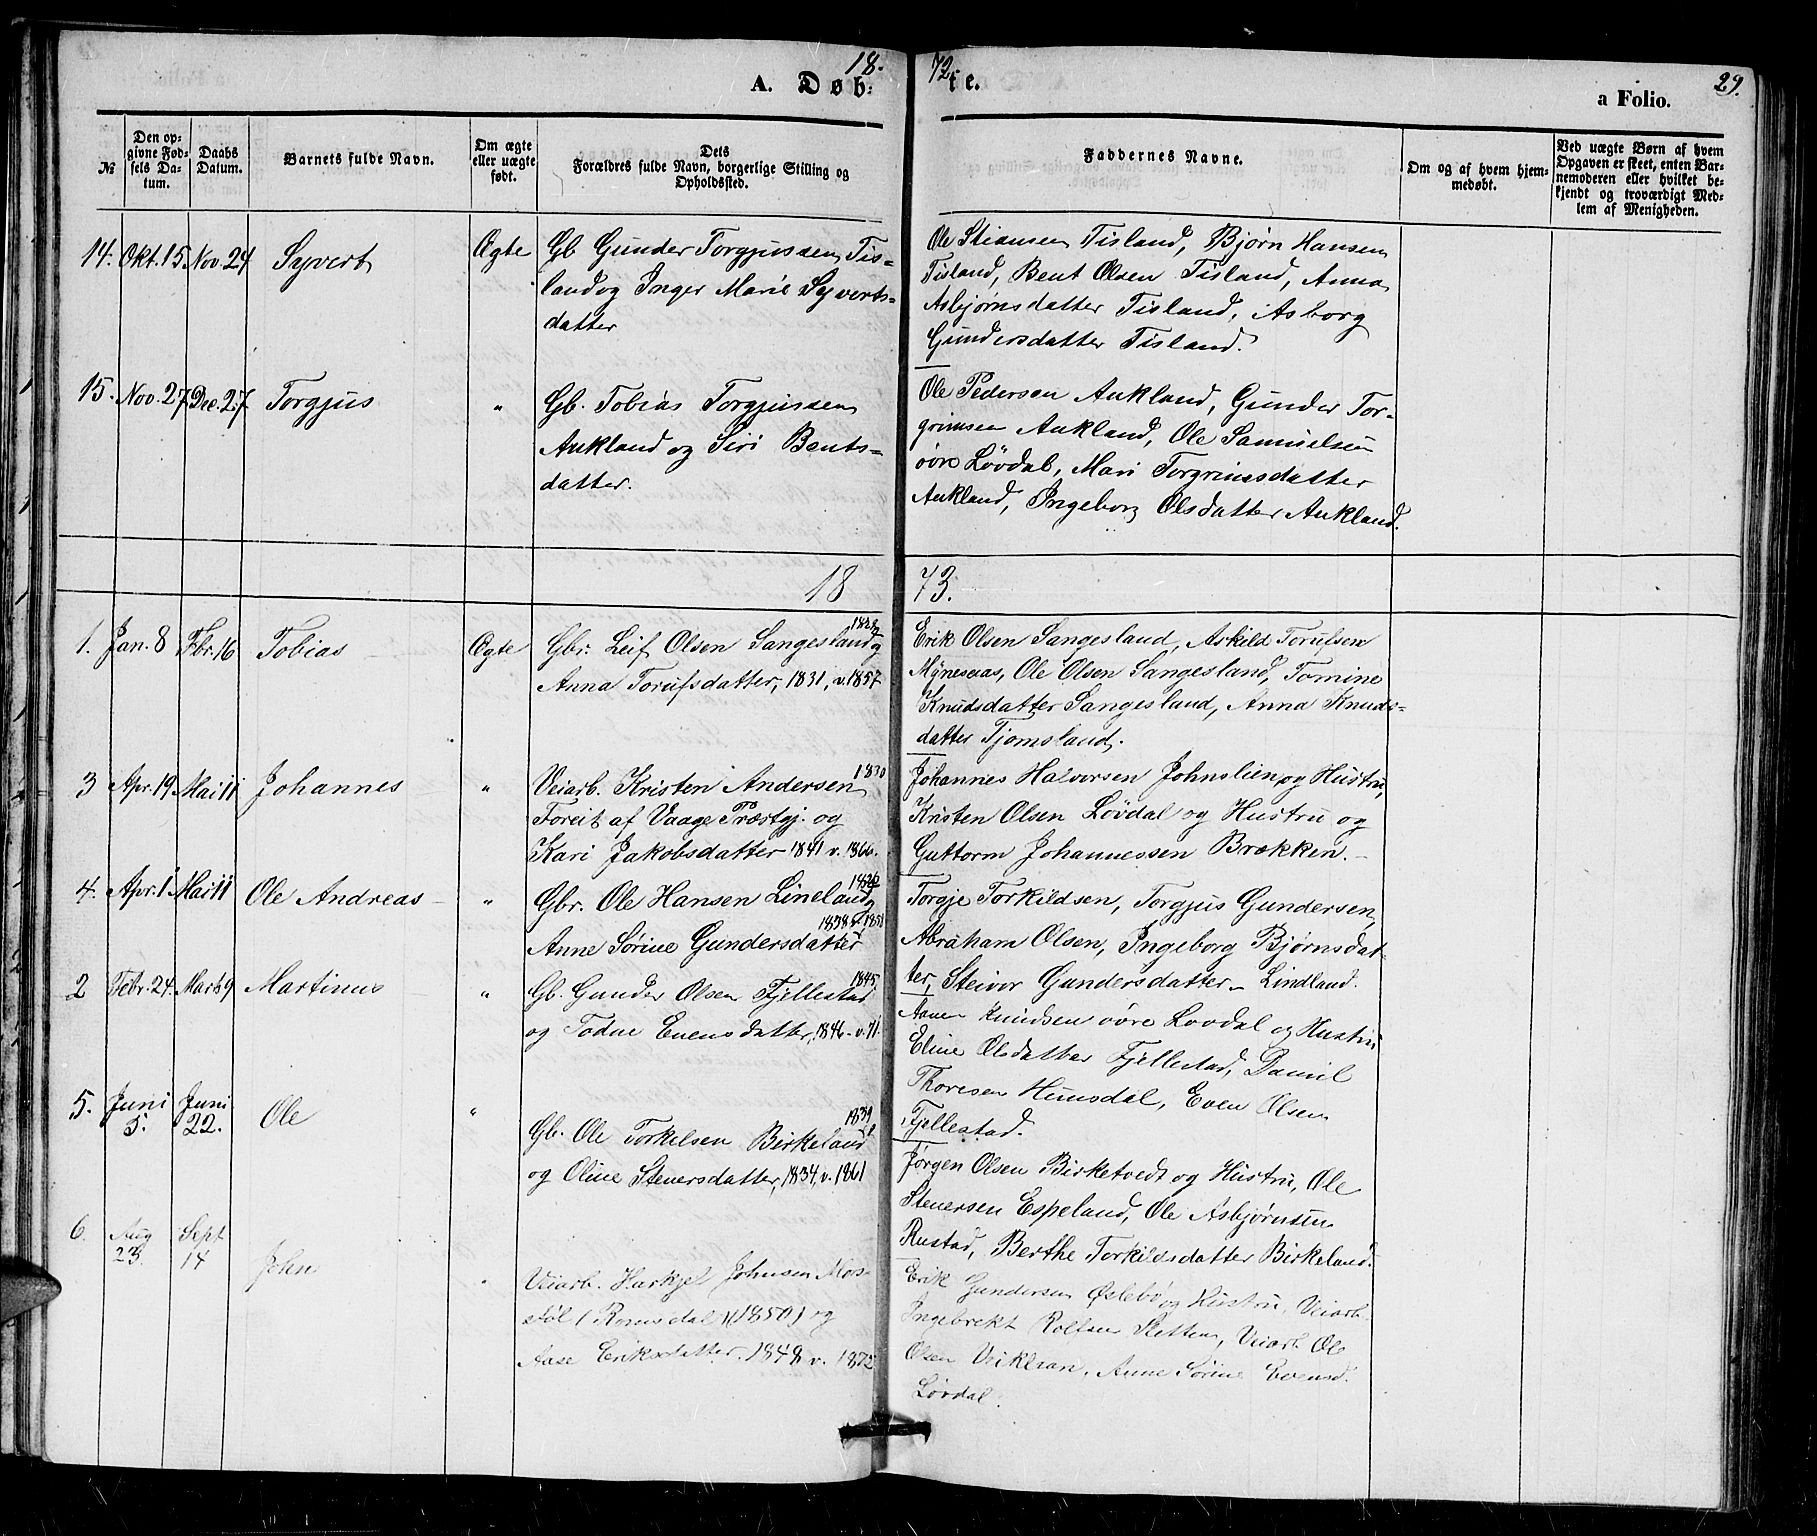 18. 72.
A. Døb: te.
a Folio. 29.
№
Den op-
givne Fød-
sels Da-
tum.
Daabs
Datum.
Barnets fulde Navn.
Om ægte
eller uægte
født.
Dets
Forældres fulde Navn, borgerlige Stilling og
Opholdssted.
Faddernes Navne.
Om og af hvem hjem-
medøbt.
Ved uægte Børn af hvem
Opgaven er skeet, enten Bar-
nemoderen eller hvilket be-
kjendt og troværdigt Med-
lem af Menigheden.
14. Okt. 15 Nov. 24 Syvert Ægte
Gb Gunder Torgjussen Tis-
land og Inger Marie Syverts-
datter
Ole Stiansen Tisland, Bjørn Hansen
Tisland, Bent Olsen Tisland, Anna
Asbjørnsdatter Tisland, Asborg
Gundersdatter Tisland.
15. Nov. 27 Dec. 27 Torgjus "
Gb. Tobias Torgjussen
Aukland og Siri Bents-
datter.
Ole Pedersen Aukland, Gunder Tor-
grimsen Aukland, Ole Samuelsen
øvre Løvdal, Mari Torgrimsdatter
Aukland, Ingeborg Olsdatter Aukland.
18 73.
1. Jan. 8 Fbr. 16 Tobias Ægte
Gbr. Leif Olsen Sangesland og
Anna Torufsdatter, 1831, v. 1857
Erik Olsen Sangesland, Askild Torufsen
Mynesaas, Ole Olsen Sangesland, Tomine
Knudsdatter Sangesland, Anna Knuds-
datter Tjomsland.
3 Apr. 19 Mai 11 Johannes "
1830
Veiarb. Kristen Andersen
Toreit af Vaage Præstgj. og
Kari Jakobsdatter 1841 v. 1866.
Johannes Halvorsen Johnslien og Hustru,
Kristen Olsen Løvdal og Hustru og
Guttorm Johannessen Brækken.
4. Apr. 1 Mai 11 Ole Andreas "
Gbr. Ole Hansen Lineland og
1838
Anne Sørine Gundersdatter
Torgje Torkildsen, Torgjus Gundersen,
Abraham Olsen, Ingeborg Bjørnsdat-
ter, Steivor Gundersdatter - Lindland.
2 Febr. 24. Marts 9 Martinus "
1845,
Gb. Gunder Olsen Fjellestad
og Todne Evensdatter, 1846 - v. 71.
Aanen Knudsen øvre Løvdal og Hustru
Eline Olsdatter Fjellestad, Daniel
Thoresen Humsdal, Even Olsen
Fjellestad.
5. Juni 5. Juni 22. Ole "
1839
Gb. Ole Torkelsen Birkeland
og Oline Stenersdatter, 1834, v. 1861
Jørgen Olsen Birketvedt og Hustru, Ole
Stenersen Espeland, Ole Asbjørnsen
Rustad, Berthe Torkildsdatter Birkeland.
6. Aug 23. Sept 14 John "
Veiarb. Harkjel Johnsen Mos-
støl (Romsdal) (1850) og
Aase Eriksdatter. 1848 v. 1872
Erik Gundersen Øslebø og Hustru, Veiarb.
Ingebrekt Rolfsen Sletten, Veiarb. Ole
Olsen, Anne Sørine Evensd.
Løvdal.